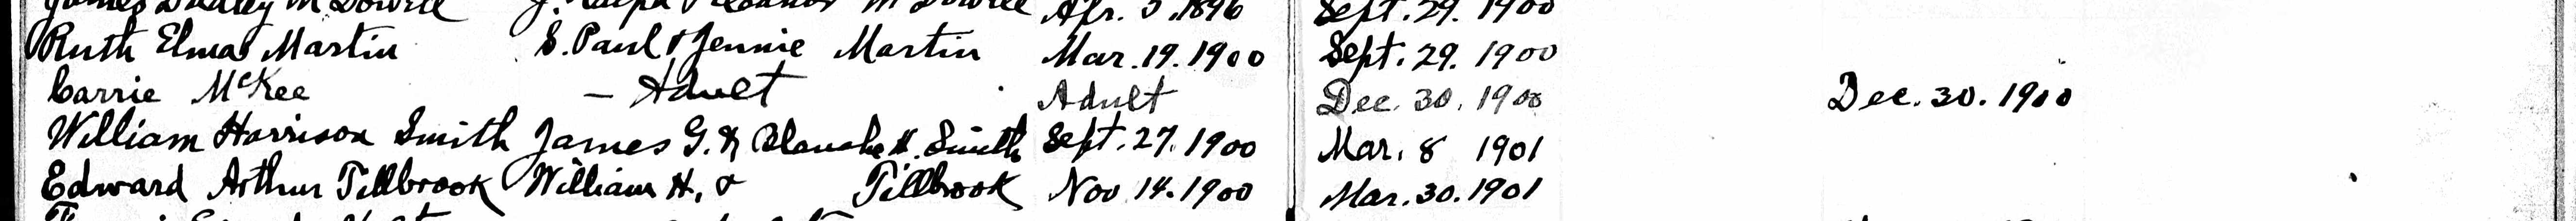 James Dudley McDowell J. Ralph & Eleanor McDowell Apr. 5. 1896 Sept. 29. 1900
Ruth Elma Martin S. Paul & Jennie Martin Mar. 19. 1900 Sept. 29. 1900
Carrie McKee — Adult Adult Dec. 30. 1900 Dec. 30. 1900
William Harrison Smith James G. & Blanche H. Smith Sept. 27. 1900 Mar. 8 1901
Edward Arthur Tillbrook William H. & Tillbrook Nov 14. 1900 Mar. 30. 1901